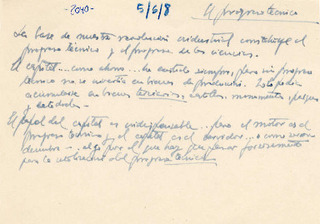 -2030-
5/6/8
El progreso técnico
La base de nuestra revolución industrial constituye el
progreso técnico y el progreso de las ciencias.
El capital... como ahorro... ha existido siempre, pero sin progreso
técnico no se invertía en bienes de producción. Solo podía
acumularse en bienes terciarios, artísticos, monumentos, palacios
y catedrales.
El papel del capital es indispensable... pero el motor es el
progreso técnico y el capital es el servidor... o como
... algo por el que hay que pasar forzosamente
para la celebración del progreso técnico